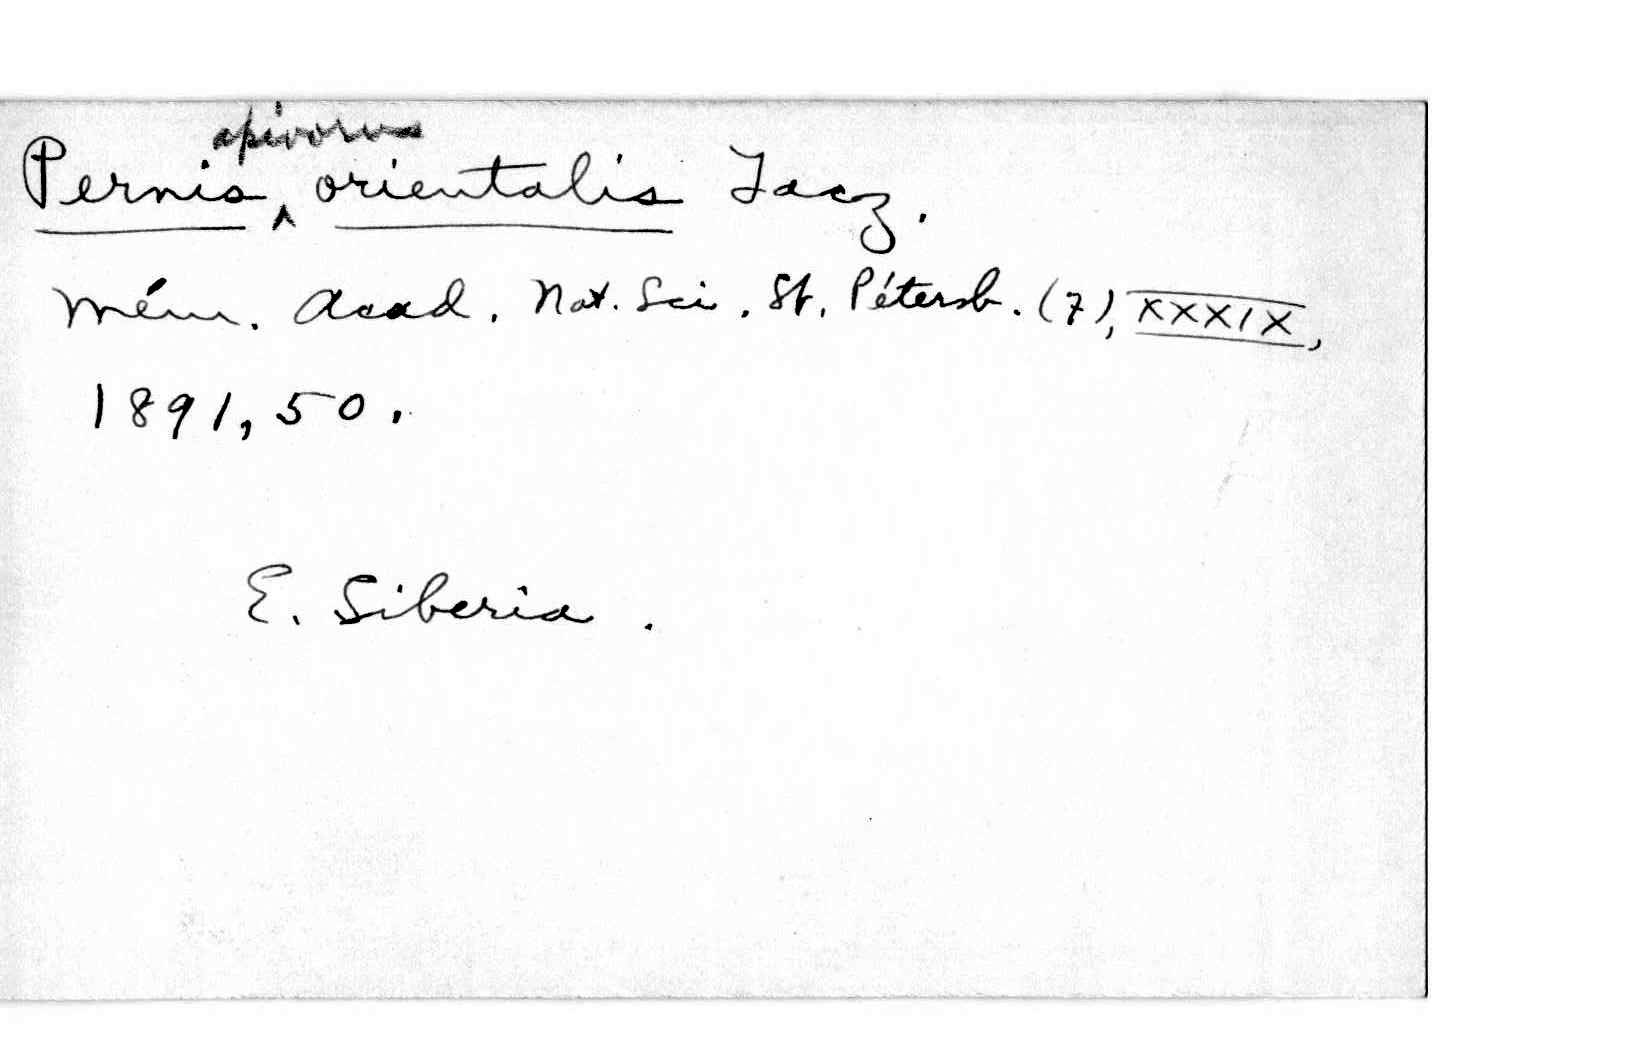 Pernis ^apivorus orientalis Tacz.
Mém. Acad. Nat. Sci. St. Pétersb. (7), XXXIX,
1891, 50.
E. Siberia.